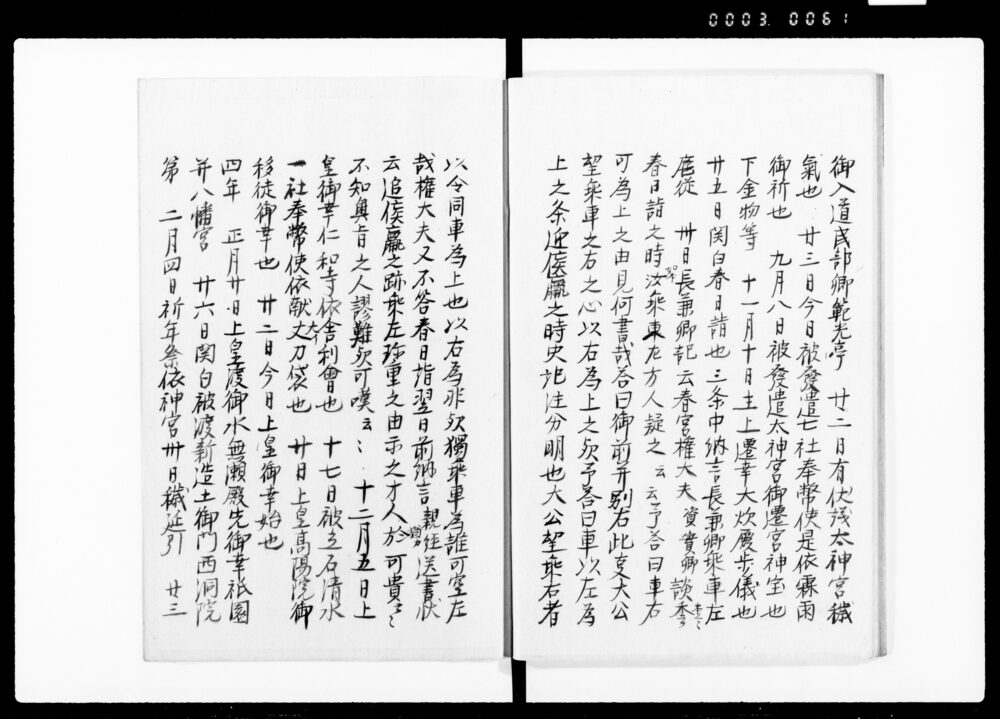 0003 0061
御入道民部卿範光亭　廿二日有伏議太神宮穢
氣也　廿三日今日被發遣七社奉幣使是依霖雨
御祈也　九月八日被發遣太神宮御遷宮神宝也
下金物等　十一月十日主上遷幸大炊殿歩儀也
廿五日関白春日詣也三条中納言長兼卿乗車左
扈從　卅日長兼卿記云春宮權大夫資實卿談
春日詣之時汝乗車左方人疑之云云予答曰車右
可為上之由見何書哉答曰御前并別右此支大公
望乗車之右之心以右為上之欤予答曰車以左為
上之条迎侯嬴之時史記注分明也大公望乗右者
以令同車為上也以右為非欤獨乗車為誰可空左
哉權大夫又不答春日詣翌日前納言親経送書状
云追侯嬴之跡乗左珎重之由示之才人於可貴
不知奥旨之人謬難欤可嘆云々　十二月五日上
皇御幸仁和寺依舎利會也　十七日被立石清水
一社奉幣使依献大刀袋也　廿日上皇高陽院御
移徙御幸也　廿二日今日上皇御幸始也
四年　正月廿日上皇渡御水無瀬殿先御幸祇園
并八幡宮　廿六日関白被渡新造土御門西洞院
第　二月四日祈年祭依神宮卅日穢延引　廿三